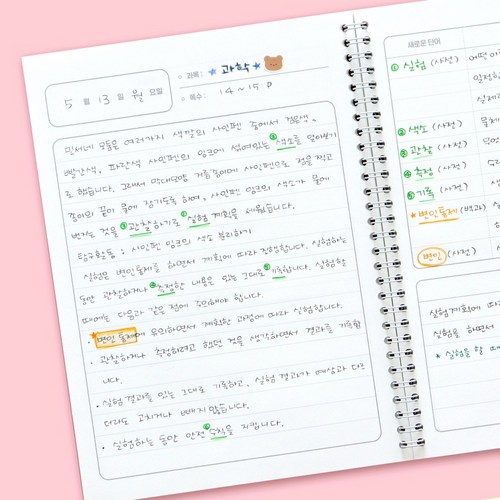 과목 : ★ 과학 ★
5 월 13 일 월 요일
쪽수 : 14 ~ 15 P
민서네 모둠은 여러가지 색깔의 사인펜 중에서 검은색,
빨간색, 파란색 사인펜의 잉크에 섞여있는 ②색소를 알아보기
로 했습니다. 그래서 막대모양 거름종이에 사인펜으로 점을 찍고
종이의 끝이 물에 잠기도록 하여, 사인펜 잉크의 색소가 물에
번지는 것을 ③관찰하기로 ①실험 계획을 세웠습니다.
탐구활동 : 사인펜 잉크의 색소 분리하기
실험은 변인통제를 하면서 계획에 따라 진행합니다. 실험하는
동안 관찰하거나 ④측정한 내용은 있는 그대로 ⑤기록합니다. 실험할
때에는 다음과 같은 점에 주의해야 합니다.
· ★변인 통제에 유의하면서 계획한 과정에 따라 실험합니다.
· 관찰하거나 측정하려고 했던 것을 생각하면서 결과를 기록합
니다.
· 실험 결과를 있는 그대로 기록하고, 실험 결과가 예상과 다르
더라도 고치거나 빼지 않습니다.
· 실험하는 동안 안전 ⑥수칙을 지킵니다.
새로운 단어
① 실험 (사전)
② 색소 (사전)
③ 관찰 (사전)
④ 측정 (사전)
⑤ 기록 (사전)
★ 변인통제 (백과)
변인 (사전)
실험계획에 따라
실험을 하면서
★ 실험을 할 때